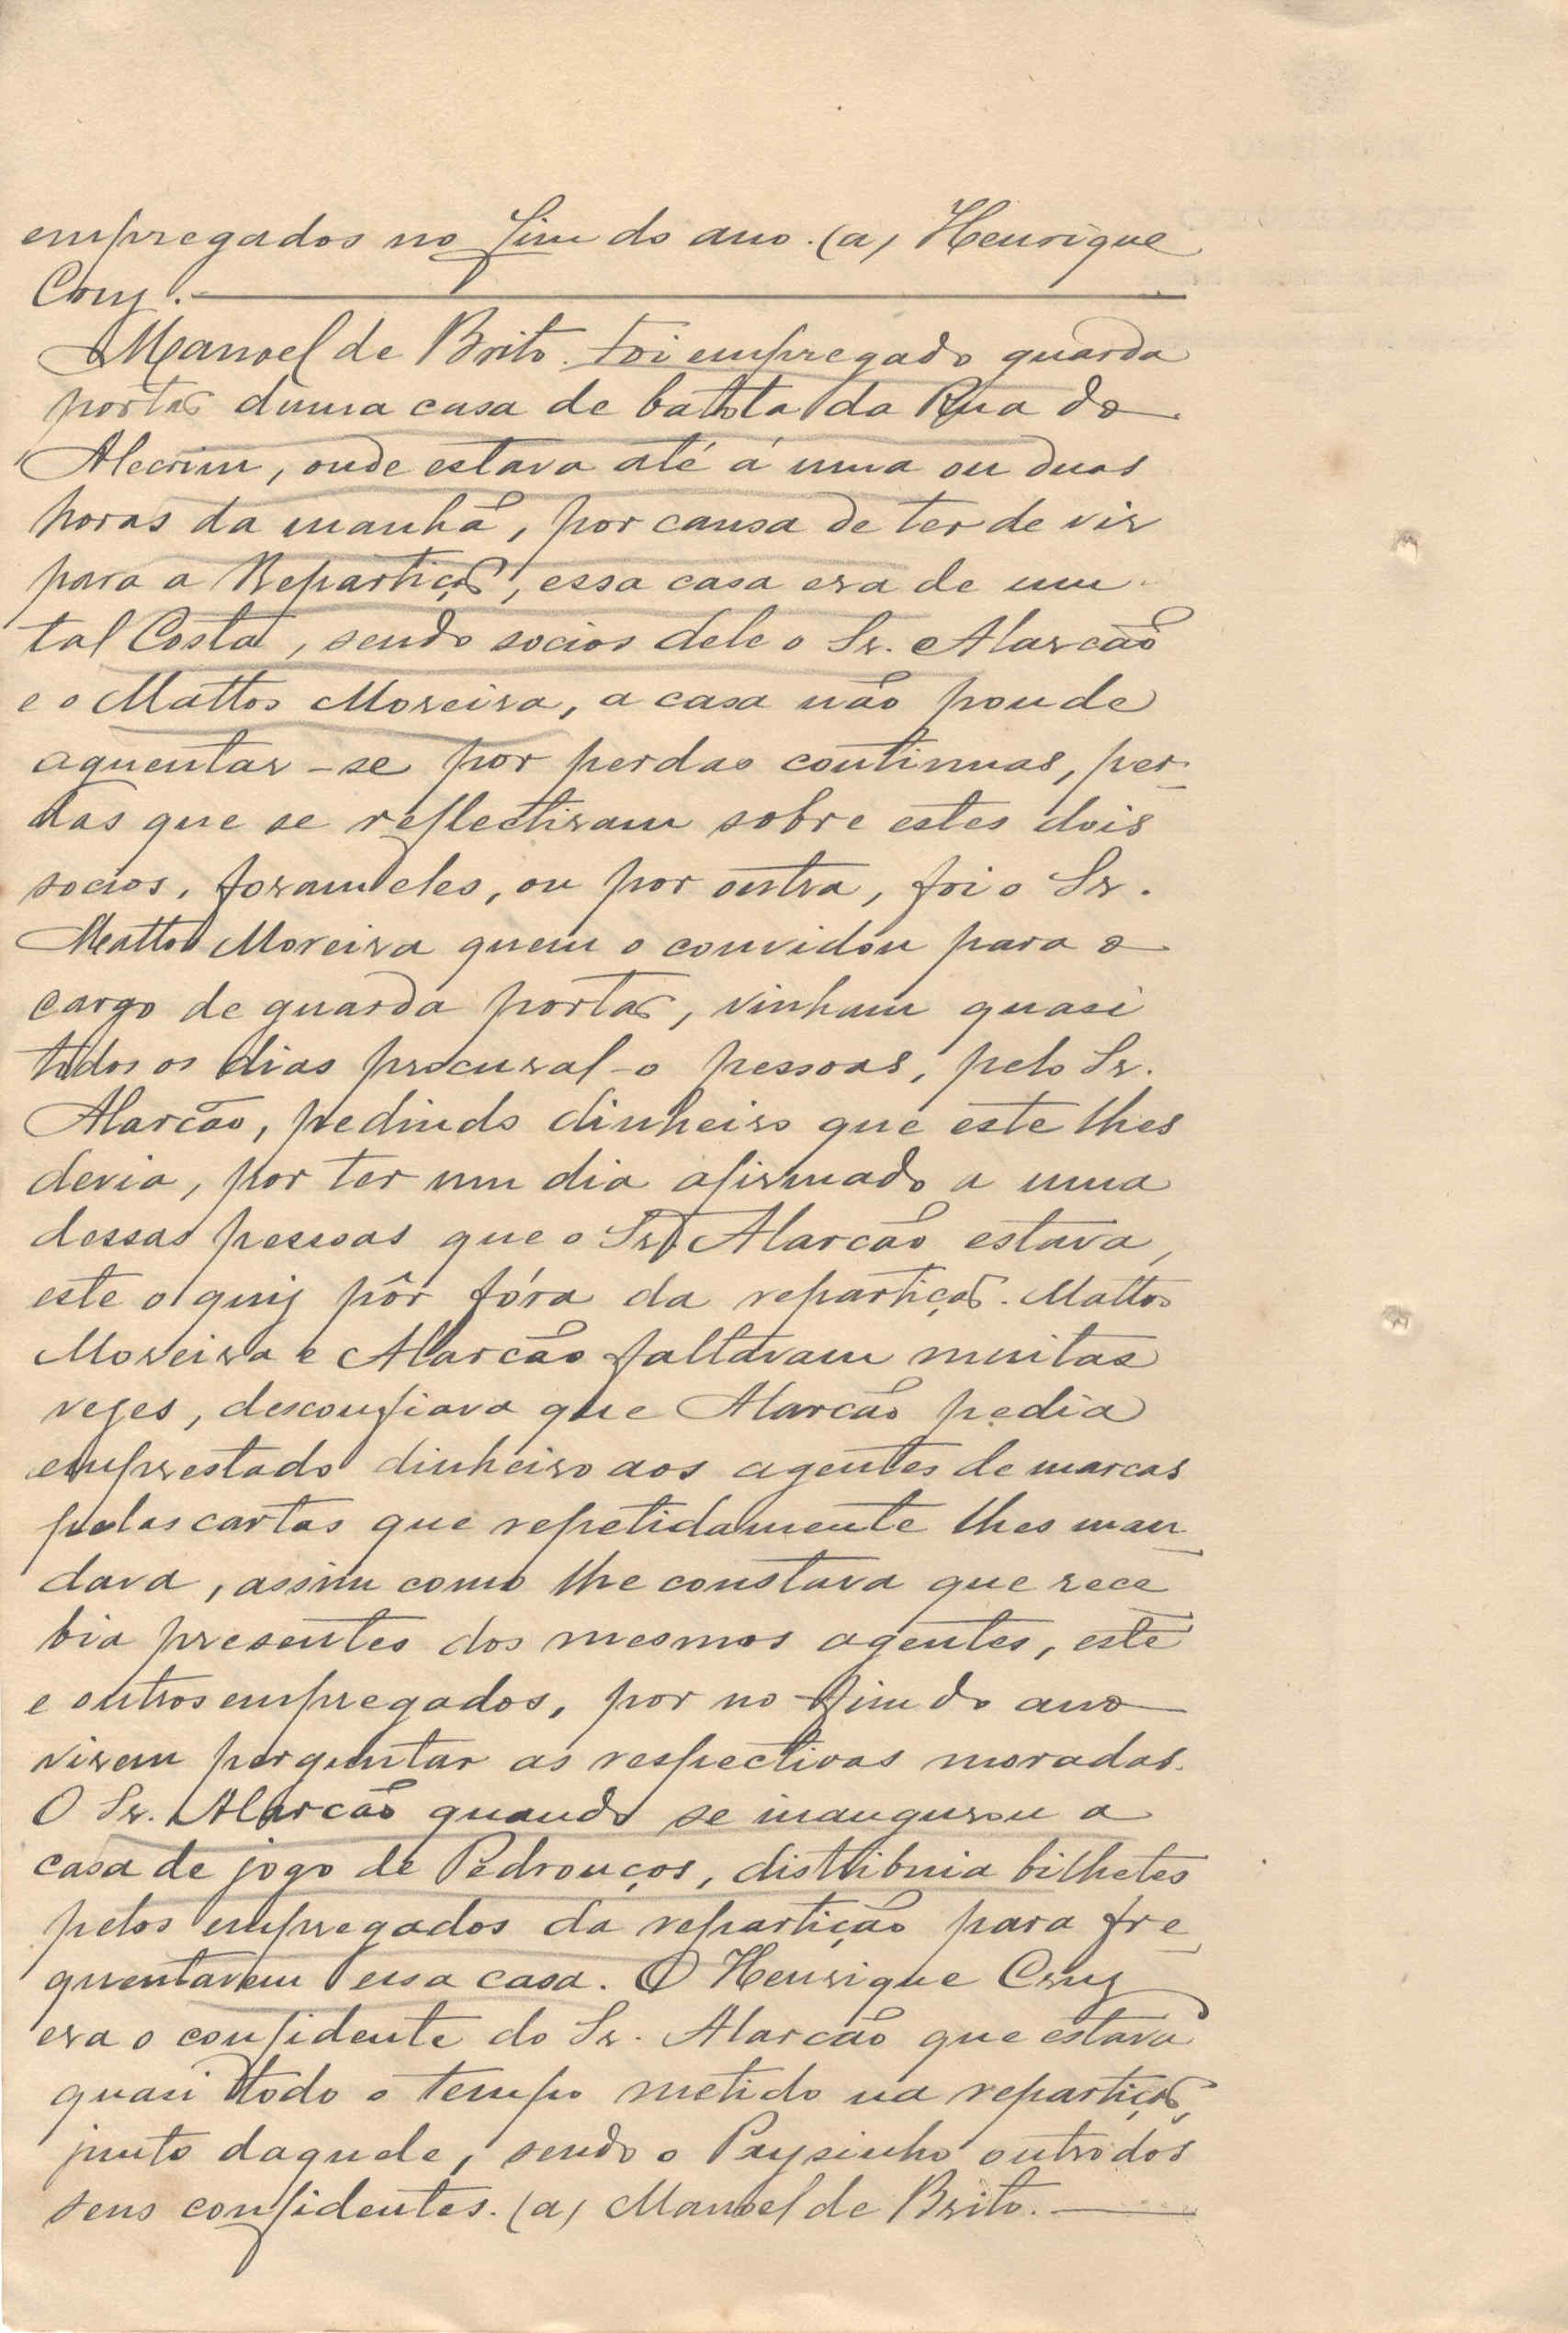 empregados no fim do ano. (a) Henrique
Cruz.
Manoel de Brito. Foi empregado guarda
portão duma casa de batota da Rua do
Alecrim, onde estava até á uma ou duas
horas da manhã, por causa de ter de vir
para a Repartição, essa casa era de um
tal Costa, sendo socios dele o Sr. Alarcão
e o Mattos Moreira, a casa não poude
aguentar-se por perdas continuas, per-
das que se reflectiram sobre estes dois
socios, foram eles, ou por outra, foi o Sr.
Mattos Moreira quem o convidou para o
cargo de guarda portão, vinham quasi
todos os dias procural-o pessoas, pelo Sr.
Alarcão, pedindo dinheiro que este lhes
devia, por ter um dia afirmado a uma
dessas pessoas que o Sr. Alarcão estava,
este o quiz pôr fóra da repartição. Mattos
Moreira e Alarcão faltavam muitas
vezes, desconfiava que Alarcão pedia
emprestado dinheiro aos agentes de marcas
pelas cartas que repetidamente lhes man-
dava, assim como lhe constava que rece-
bia presentes dos mesmos agentes, este
e outros empregados, por no fim do ano
virem perguntar as respectivas moradas.
O Sr. Alarcão quando se inaugurou a
casa de jogo de Pedrouços, distribuia bilhetes
pelos empregados da repartição para fre-
quentarem essa casa. O Henrique Cruz
era o confidente do Sr. Alarcão que estava
quasi todo o tempo metido na repartição,
junto daquele, sendo o Paysinho outro dos
seus confidentes. (a) Manoel de Brito.